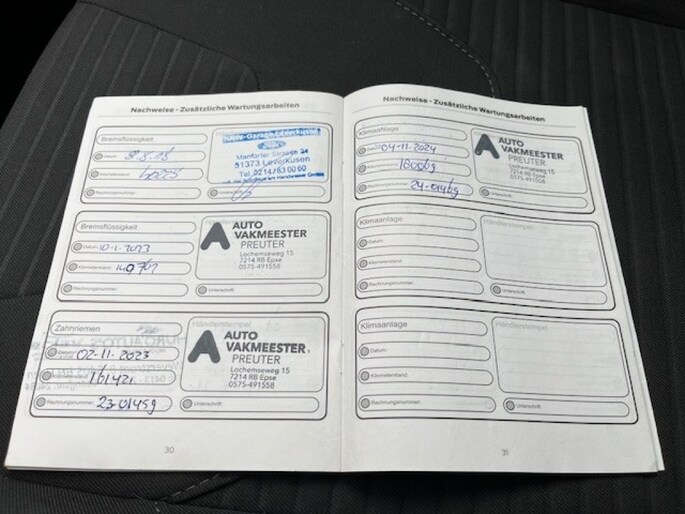 Nachweise - Zusätzliche Wartungsarbeiten
Bremsflüssigkeit
Datum:
Kilometerstand:
Rechnungsnummer:
Manforter Strasse 24
51373 Leverkusen
Tel. 0214/83 00 60
Unterschrift:
Bremsflüssigkeit
Datum: 10-1-2023
Kilometerstand:
Rechnungsnummer:
AUTO
VAKMEESTER
PREUTER
Lochemseweg 15
7214 RB Epse
0575-491558
Unterschrift:
Zahnriemen
Datum: 02-11-2023
161421
Rechnungsnummer: 23-01459
Händlerstempel
AUTO
VAKMEESTER
PREUTER
Lochemseweg 15
7214 RB Epse
0575-491558
Unterschrift:
30
Nachweise - Zusätzliche Wartungsarbeiten
Klimaanlage
04-11-2024
Rechnungsnummer:
AUTO
VAKMEESTER
PREUTER
Lochemseweg 15
7214 RB Epse
0575-491558
Unterschrift:
Klimaanlage
Datum:
Kilometerstand:
Rechnungsnummer:
Händlerstempel
Unterschrift:
Klimaanlage
Datum:
Kilometerstand:
Rechnungsnummer:
Händlerstempel
Unterschrift:
31